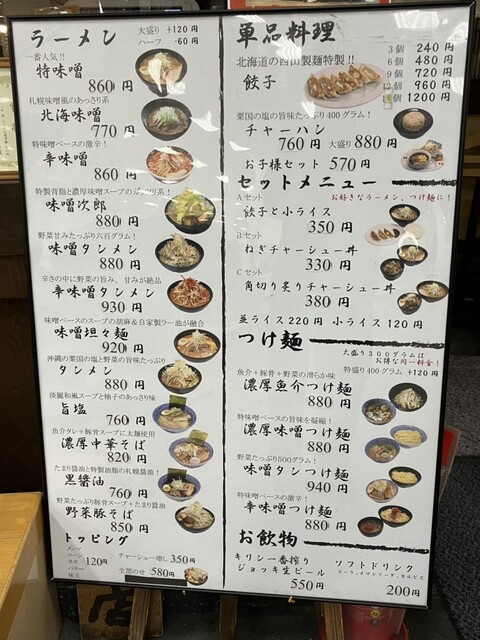 ラーメン 大盛り +120円
ハーフ -60円
一番人気!!
特味噌
860 円
札幌味噌風のあっさり系
北海味噌
770 円
特味噌ベースの激辛!
辛味噌
860 円
特製背脂と濃厚味噌スープのガッツリ系!
味噌次郎
880 円
野菜甘みたっぷり六百グラム!
味噌タンメン
880 円
辛さの中に野菜の旨み、甘みが絶品
辛味噌タンメン
930 円
味噌ベースのスープの胡麻&自家製ラー油が融合
味噌坦々麺
920 円
沖縄の粟国の塩と野菜の旨味たっぷり
タンメン
880 円
淡麗和風スープと柚子のあっさり味
旨塩
760 円
魚介タレ+豚骨スープに太麺使用
濃厚中華そば
820 円
たまり醤油と特製油脂の札幌醤油!
黒醤油
760 円
野菜たっぷり豚骨スープ+たまり醤油
野菜豚そば
850 円
トッピング
メンマ
コーン
ネギ
バター
味玉
120円
チャーシュー増し 350円
全部のせ 580円
単品料理
北海道の西山製麺特製!!
餃子
3 個 240 円
6 個 480 円
9 個 720 円
12 個 960 円
個 1200 円
粟国の塩の旨味たっぷり400グラム!
チャーハン
760 円 大盛り 880 円
お子様セット 570 円
セットメニュー
Aセット お好きなラーメン、つけ麺に!
餃子と小ライス
350 円
Bセット
ねぎチャーシュー丼
330 円
Cセット
角切り炙りチャーシュー丼
380 円
並ライス 220 円 小ライス 120 円
つけ麺
大盛り300グラムは
お得な同一料金!
特盛り400グラム +120円
魚介+豚骨+野菜の滑らか味
濃厚魚介つけ麺
880 円
特味噌ベースの旨味を凝縮!
濃厚味噌つけ麺
880 円
野菜たっぷり500グラム!
味噌タンつけ麺
940 円
特味噌ベースの激辛!
辛味噌つけ麺
880 円
お飲物
キリン一番搾り
ジョッキ生ビール
550 円
ソフトドリンク
200円
店